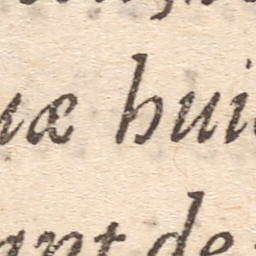 uæ hui
ant de